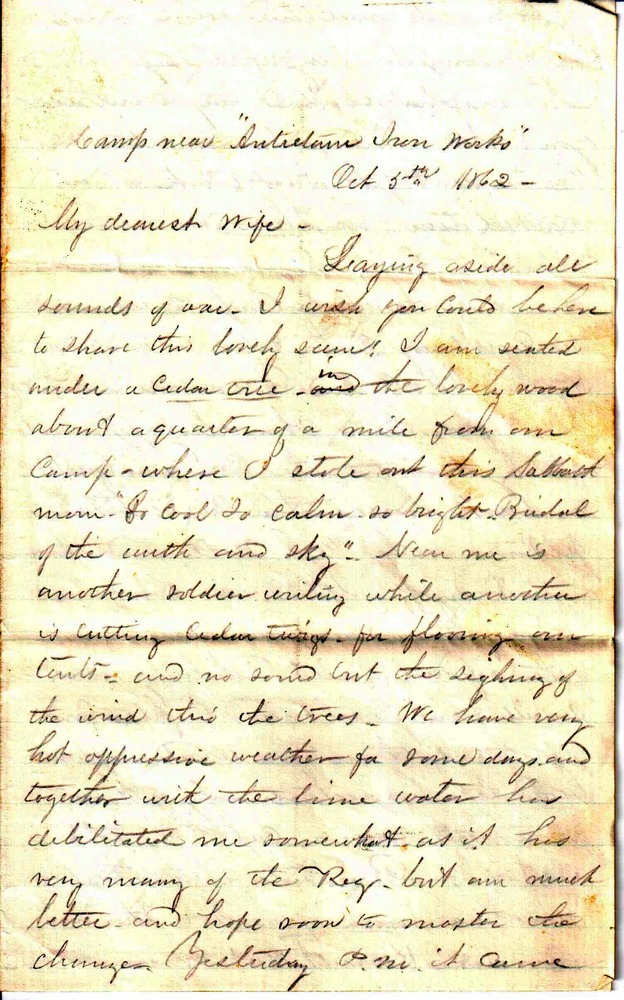 Camp near "Antietam Iron Works"
Oct 5th 1862 -
My dearest Wife -
Leaving aside all
sounds of war - I wish you could be here
to share this lovely scene! I am seated
under a Cedar tree - and in the lovely wood
about a quarter of a mile from our
Camp - where I stole out this Sabbath
morn - "So cool so calm so bright - Bridal
of the earth and sky" - Near me is
another soldier writing while another
is cutting Cedar twigs - for flooring our
tents - and no sound but the sighing of
the wind thro the trees - We have very
hot oppressive weather for some days and
together with the lime water has
debilitated me somewhat as it has
very many of the Reg - but am much
better - and hope soon to master the
change - Yesterday P.M. it came